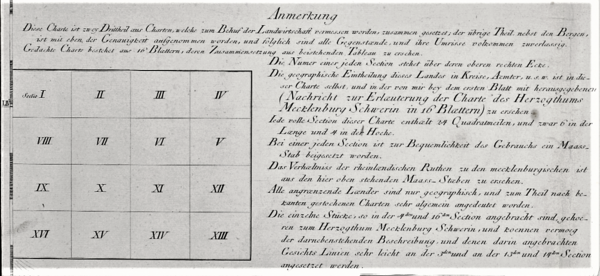 Anmerkung
Diese Charte ist zwey Drittheil aus Charten, welche zum Behuf der Landwirtschaft vermessen worden; zusammen gesetzt; der übrige Theil nebst den Bergen,
ist mit eben der Genauigkeit aufgenommen worden; und folglich sind alle Gegenstænde, und ihre Umrisse vollkommen zuverlæssig.
Gedachte Charte bestehet aus 16 Blættern; deren Zusammensetzung aus beistehenden Tableau zu ersehen.
Die Numer einer jeden Section stehet über deren oberen rechten Ecke.
Die geographische Eintheilung dieses Landes in Kreise, Aemter, u.s.w. ist in die-
ser Charte selbst, und in der von mir bey dem ersten Blatt mit herausgegebenen
(Nachricht zur Erlæuterung der Charte des Herzogthums
Mecklenburg Schwerin in 16 Blættern) zu ersehen
Iede volle Section dieser Charte enthælt 24 Quadratmeilen, und zwar 6 in der
Længe und 4 in der Hoehe.
Bei einer jeden Section ist zur Bequemlichkeit des Gebrauchs ein Maass-
Stab beigesetzt worden.
Das Verhæltniss der rheinlendischen Ruthen zu den mecklenburgischen ist
aus den hier oben stehenden Maass-Stæben zu ersehen.
Alle angrænzende Lænder sind nur geographisch, und zum Theil nach be-
kanten gestochenen Charten sehr algemein angedeutet worden.
Die einzelne Stücke, so in der 4ten und 16ten Section angebracht sind, gehoe-
ren zum Herzogthum Mecklenburg Schwerin, und koennen vermoeg
der darnebenstehenden Beschreibung, und denen darin angebrachten
Gesichts Linien sehr leicht an der 3ten und an der 13ten und 14ten Section
angesetzet werden.
Sectio I II III IV
VIII VII VI V
IX X XI XII
XVI XV XIV XIII